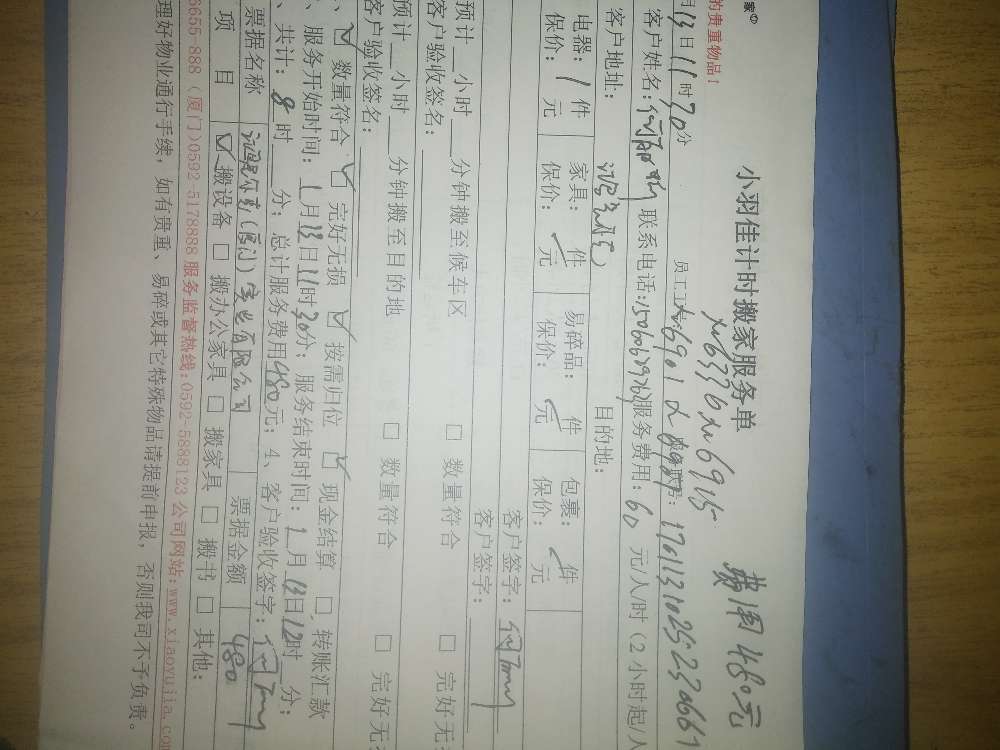 家
的贵重物品!
小羽佳计时搬家服务单
费用480元
月13日11时30分
客户姓名: 联系电话: 服务费用: 60 元/人/时(2小时起/人
客户地址: 目的地:
电器: 1 件 家具: 件 易碎品: 件 包裹: 件
保价: 元 保价: 元 保价: 元 保价: 元
客户签字:
客户签字:
预计 小时 分钟搬至候车区 □ 数量符合 □ 完好无
客户验收签名:
预计 小时 分钟搬至目的地 □ 数量符合 □ 完好无
客户验收签名:
、☑ 数量符合 ☑ 完好无损 ☑ 按需归位 ☑ 现金结算 □ 转账汇款
、服务开始时间: 1月13日11时30分; 服务结束时间: 1月13日12时 分;
、共计: 8时 分; 总计服务费用480元; 4、客户验收签字:
票据名称 (厦门)实业有限公司 票据金额 480
项 目 ☑搬设备 □ 搬办公家具 □ 搬家具 □ 搬书 □ 其他:
6655-888 (厦门)0592-5178888 服务监督热线:0592-5888123 公司网站:www.xiaoyujia.com
理好物业通行手续,如有贵重、易碎或其它特殊物品请提前申报,否则我司不予负责。